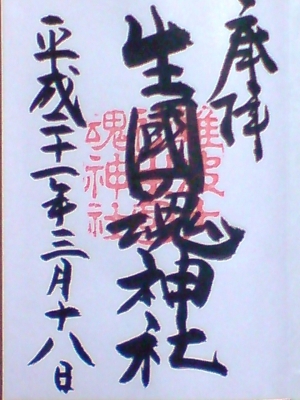 奉拝
生國魂神社
平成二十一年三月十八日
難波大社
生國魂神社